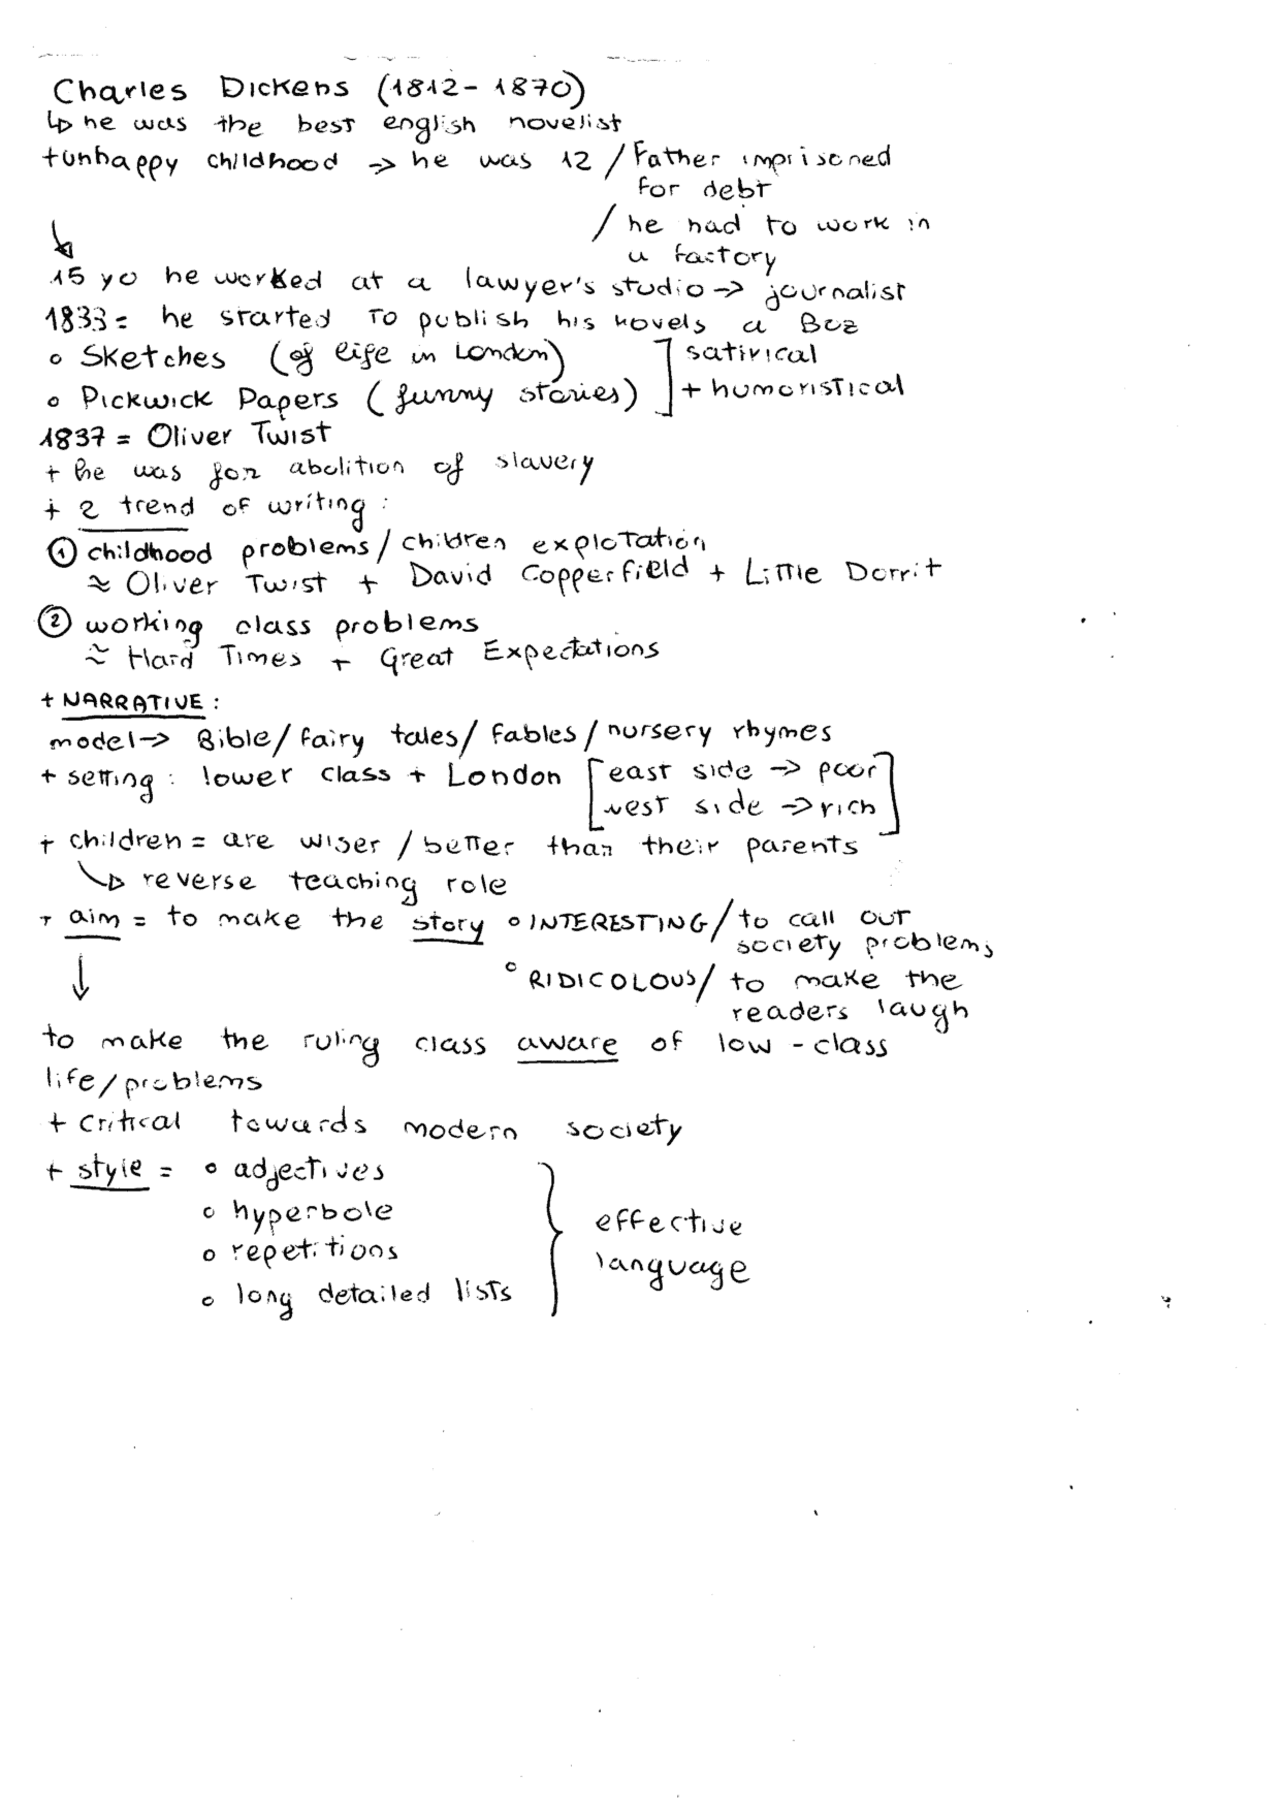 Charles Dickens (1812 - 1870)
↳ he was the best english novelist
+unhappy childhood → he was 12 / Father imprisoned
for debt
/ he had to work in
a factory
↓
15 yo he worked at a lawyer's studio → journalist
1833 = he started to publish his novels a Boz
o Sketches (of life in London) ] satirical
o Pickwick Papers (funny stories) ] + humoristical
1837 = Oliver Twist
+ he was for abolition of slavery
+ 2 trend of writing :
① childhood problems / children explotation
≈ Oliver Twist + David Copperfield + Little Dorrit
② working class problems
≈ Hard Times + Great Expectations
+ NARRATIVE :
model → Bible / fairy tales / fables / nursery rhymes
+ setting : lower class + London [ east side → poor ]
[ west side → rich ]
+ children = are wiser / better than their parents
↳ reverse teaching role
+ aim = to make the story o INTERESTING / to call out
society problems
o RIDICOLOUS / to make the
readers laugh
↓
to make the ruling class aware of low - class
life / problems
+ critical towards modern society
+ style = o adjectives
o hyperbole
o repetitions
o long detailed lists
} effective
language